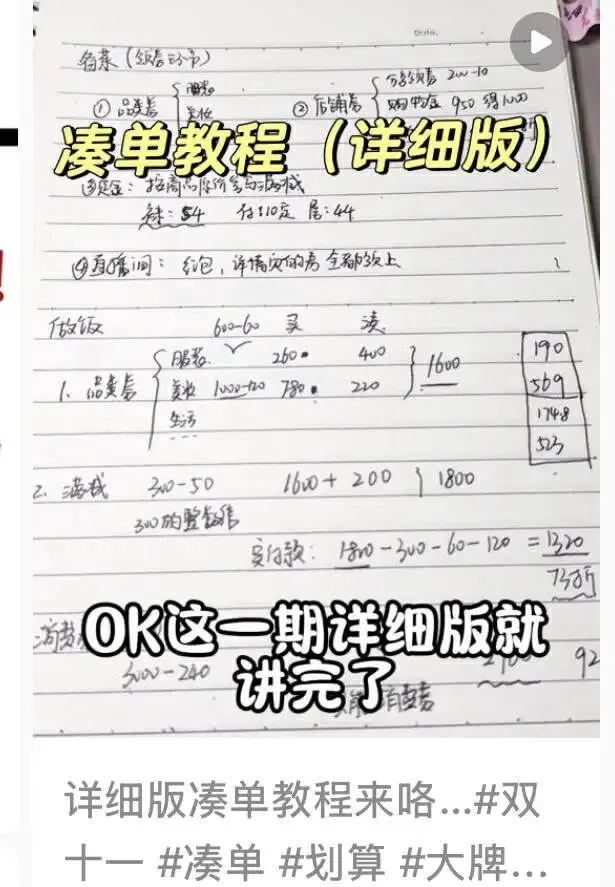 Date.
备菜（领券环节）
① 品类券 服装 美妆
② 店铺券 分享领券 200-10
购物金 950 得1000
凑单教程（详细版）
按商品原价参与满减
袜：54 付:10定 尾:44
④直播间： 红包，详情页的券 全部领上
做饭 600-60 买 凑
服装 260 400
1. 品类券 美妆 1000-120 780 220 1600
生活
190
569
1748
523
2. 满减 300-50 1600+200 1800
300的整数倍
实付款：1800-300-60-120 =1320
73折
OK这一期详细版就
讲完了
消费券
3000-240
92
详细版凑单教程来咯...#双
十一 #凑单 #划算 #大牌...